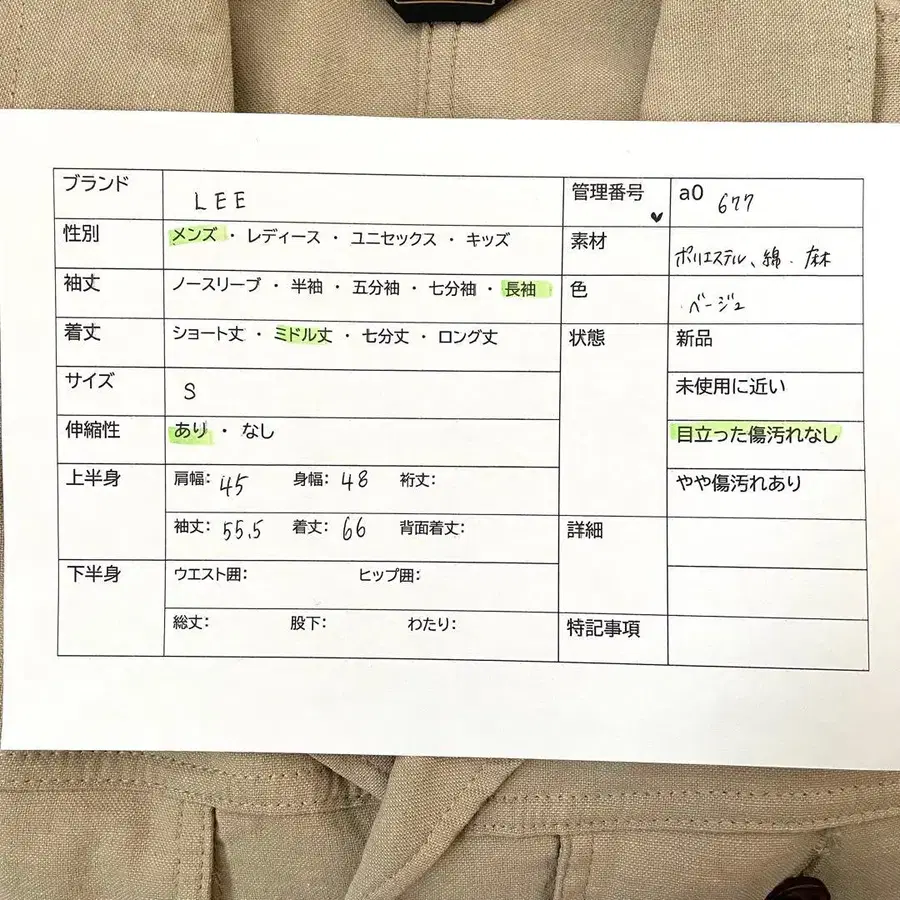 ブランド LEE 管理番号 ♥ a0 677
性別 メンズ ・ レディース ・ ユニセックス ・ キッズ 素材 ポリエステル、綿、麻
袖丈 ノースリーブ ・ 半袖 ・ 五分袖 ・ 七分袖 ・ 長袖 色 ベージュ
着丈 ショート丈 ・ ミドル丈 ・ 七分丈 ・ ロング丈 状態 新品
サイズ S 未使用に近い
伸縮性 あり ・ なし 目立った傷汚れなし
上半身 肩幅: 45 身幅: 48 裄丈: やや傷汚れあり
袖丈: 55.5 着丈: 66 背面着丈: 詳細
下半身 ウエスト囲: ヒップ囲:
総丈: 股下: わたり: 特記事項